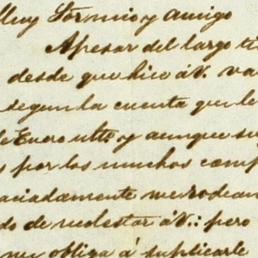 Muy Sor mio y amigo
Apesar del largo ti
desde que hice á V. va
segun la cuenta que le
de Enero ulto. y aunque su
s por los muchos comp
aciadamente me rodean
do de molestar á V.: pero
me obliga á suplicarle